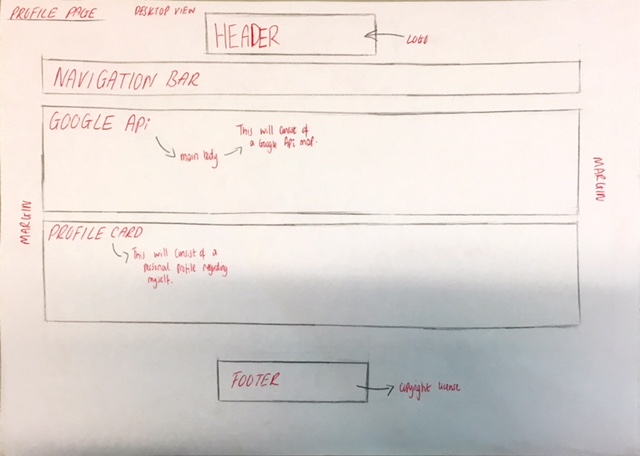 PROFILE PAGE
DESKTOP VIEW
HEADER
LOGO
NAVIGATION BAR
GOOGLE APi
main body
This will consist of
a Google Api map.
MARGIN
MARGIN
PROFILE CARD
This will consist of a
personal profile regarding
myself.
FOOTER
Copyright license